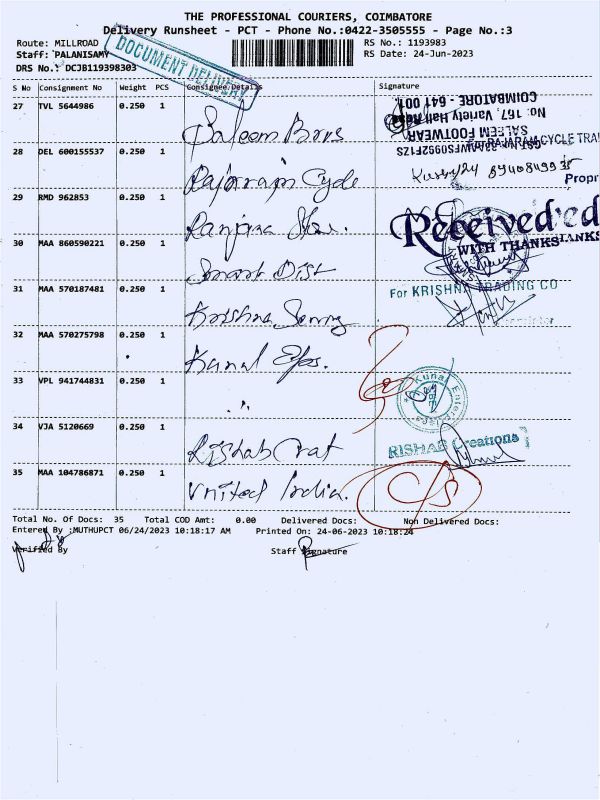 THE PROFESSIONAL COURIERS, COIMBATORE
Delivery Runsheet - PCT - Phone No.:0422-3505555 - Page No.:3
Route: MILLROAD
RS No.: 1193983
Staff: PALANISAMY
RS Date: 24-Jun-2023
DRS No.: DCJB119398303
DOCUMENT DELIVERY
S No Consignment No Weight PCS Consignee/Details Signature
27 TVL 5644986 0.250 1 Saleem Bros
No: 167, Variety Hall Road
COIMBATORE - 641 001
SALEEM FOOTWEAR
For RAJARAM CYCLE TRA
28 DEL 600155537 0.250 1 Rajarram Cycle
Propr
29 RMD 962853 0.250 1 Ranjana Stores.
Received
WITH THANKS
30 MAA 860590221 0.250 1 Smart Dist
31 MAA 570187481 0.250 1 Krishna
For KRISHNA TRADING CO
32 MAA 570275798 0.250 1 Kunal Eps.
33 VPL 941744831 0.250 1 "
Kunal Enterprises
34 VJA 5120669 0.250 1 Rishab Crat
RISHAB Creations
35 MAA 104786871 0.250 1 United India.
Total No. Of Docs: 35 Total COD Amt: 0.00 Delivered Docs: Non Delivered Docs:
Entered By :MUTHUPCT 06/24/2023 10:18:17 AM Printed On: 24-06-2023 10:18:24
Verified By Staff Signature